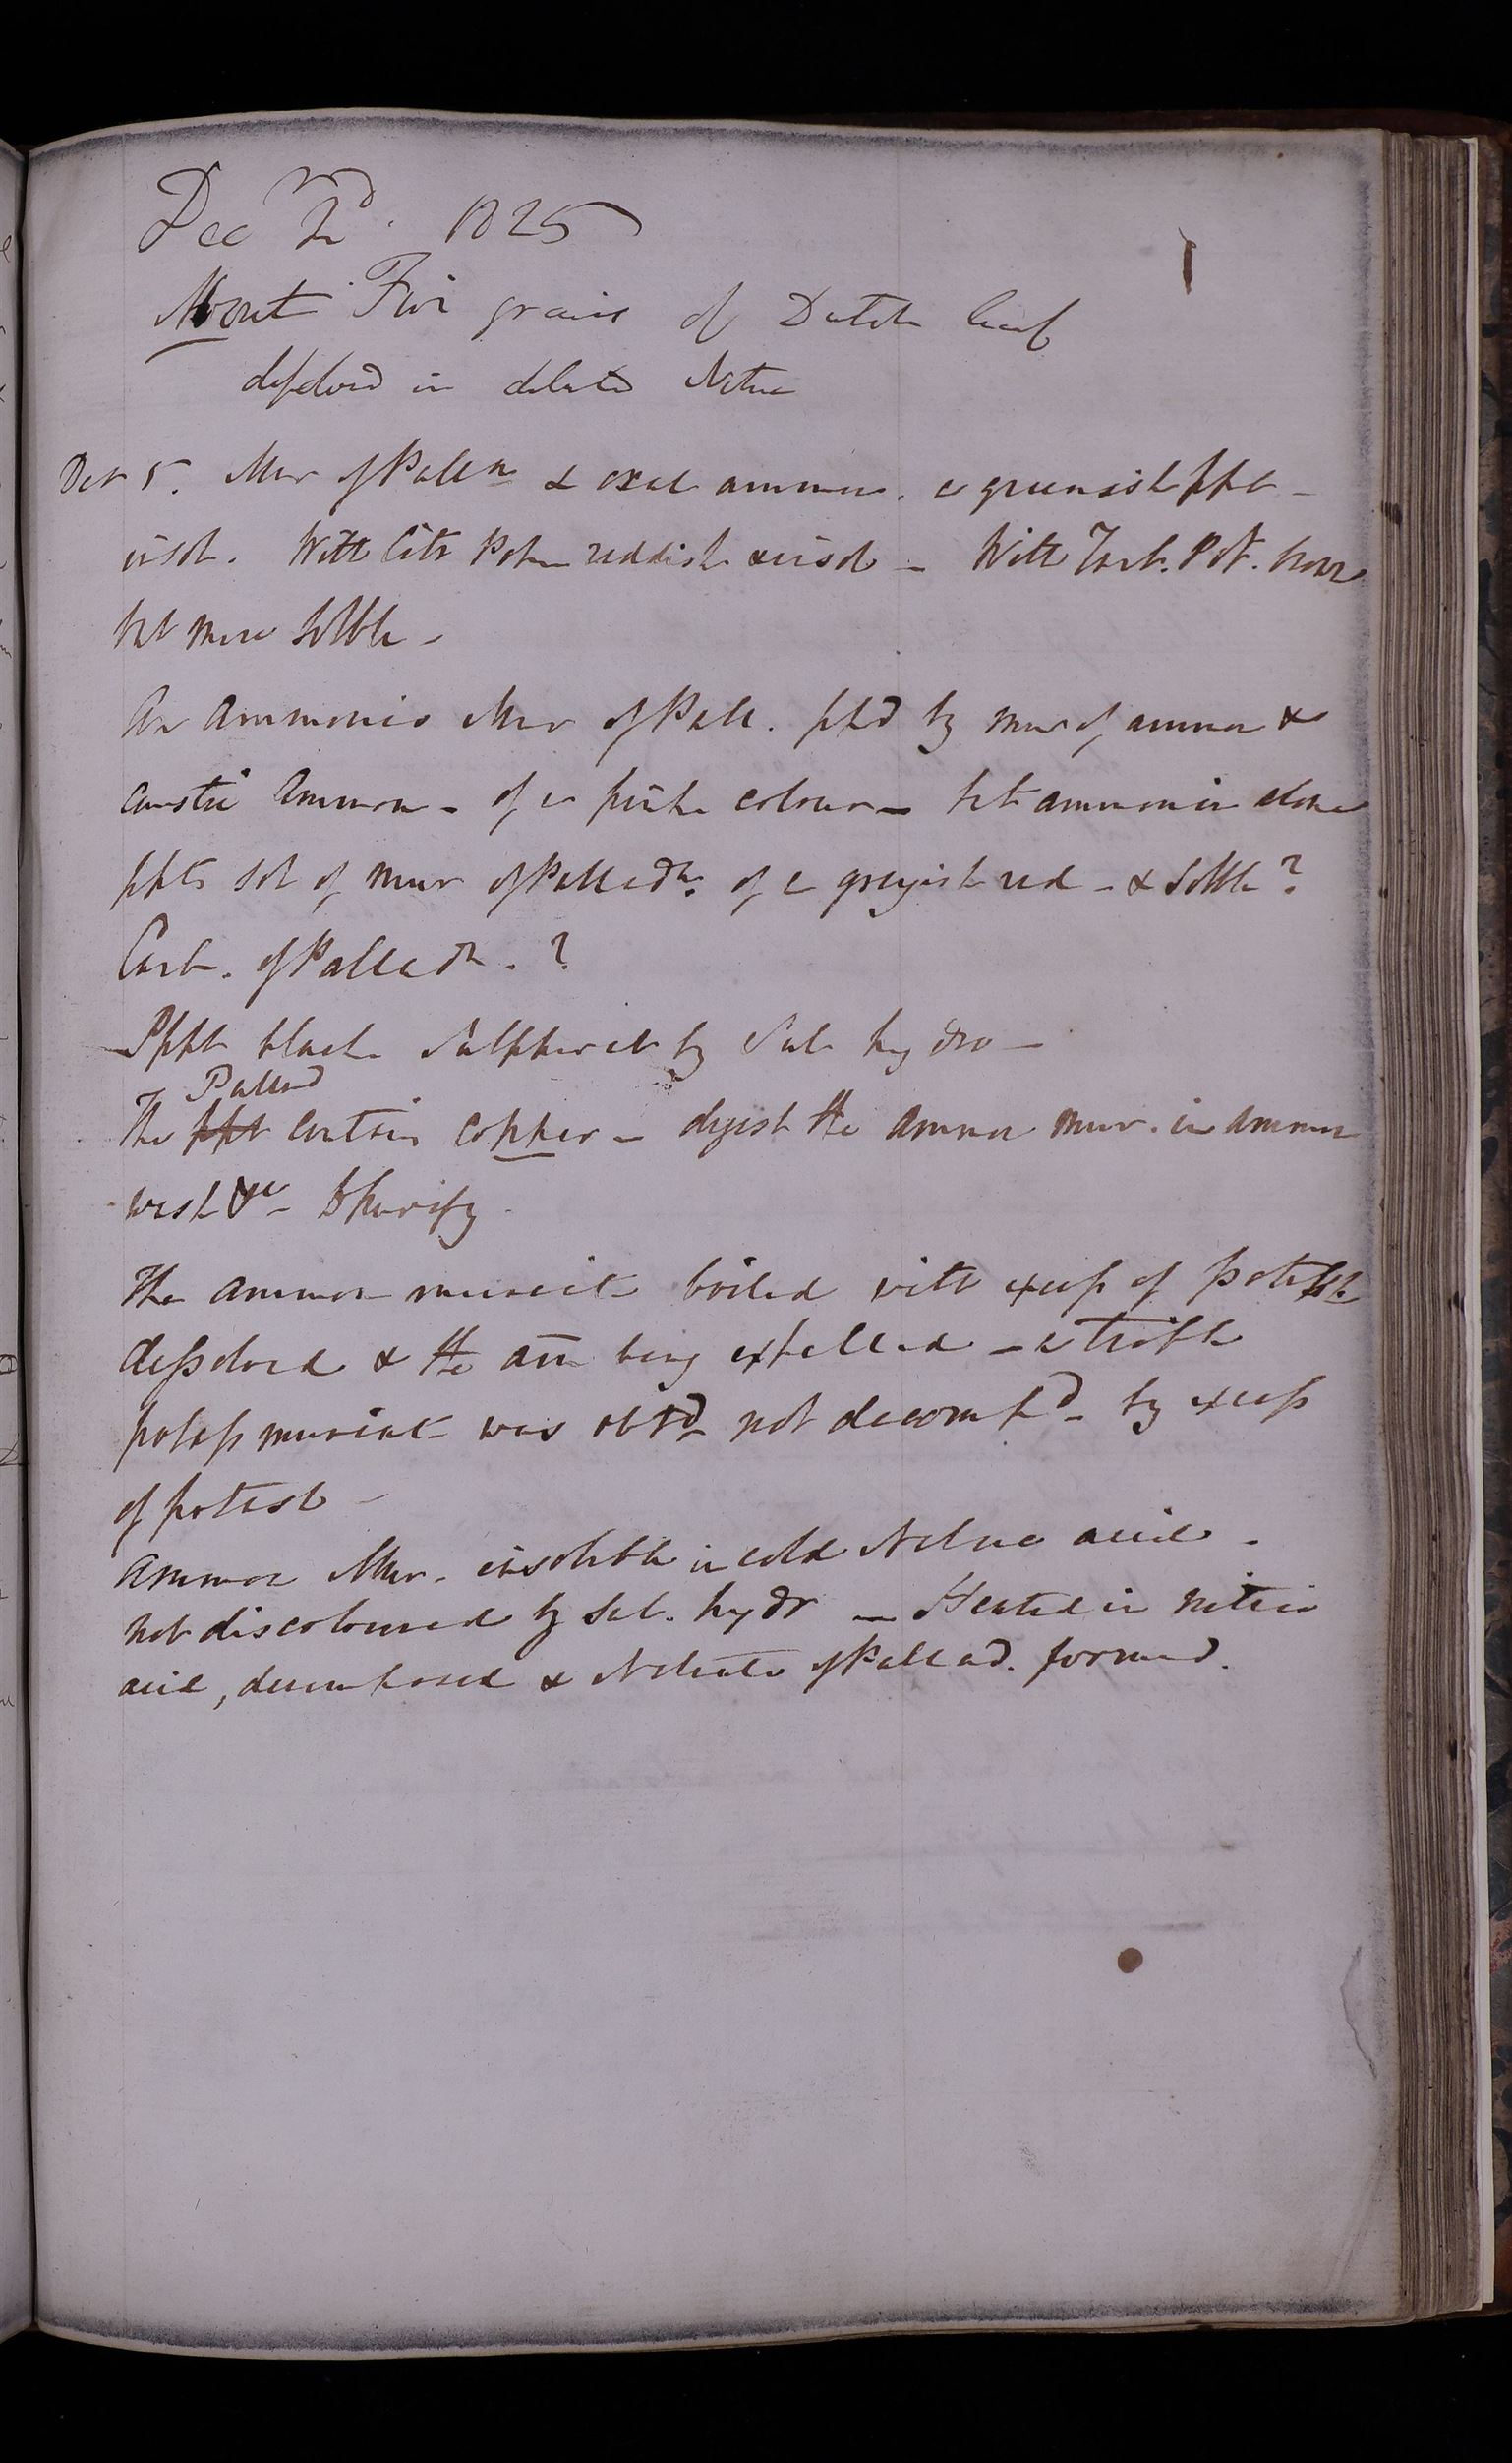 Dec 2nd. 1825
About Five grains of Dutch leaf
dissolved in dilute Nitric
Dec 5. Mur of Pallm & oxal ammon. a greenish ppt -
insol. With Citr Potm reddish & insol - With Tart. Pot.
but more solble -
An Ammonio Mur of Pall. pptd by mur of ammon &
caustic Ammon - of a pink colour - but ammonia alone
ppts sol of mur of Palladm. of a greyish red - & solble?
Carb. of Palladm. ?
Pppt black Sulphuret by Sul hydro -
Pallad
The ppt contains copper - digest the ammon mur. in ammon
wash &c - to purify.
The ammon muriate boiled with excess of potash
dissolved & the am being expelled - a triple
potass muriate was obtd - not decompd - by excess
of potash -
Ammon Mur. insoluble in cold Nitric acid -
not discoloured by Sul. hydr - Heated in nitric
acid, decomposed & Nitrate of Pallad. formed.